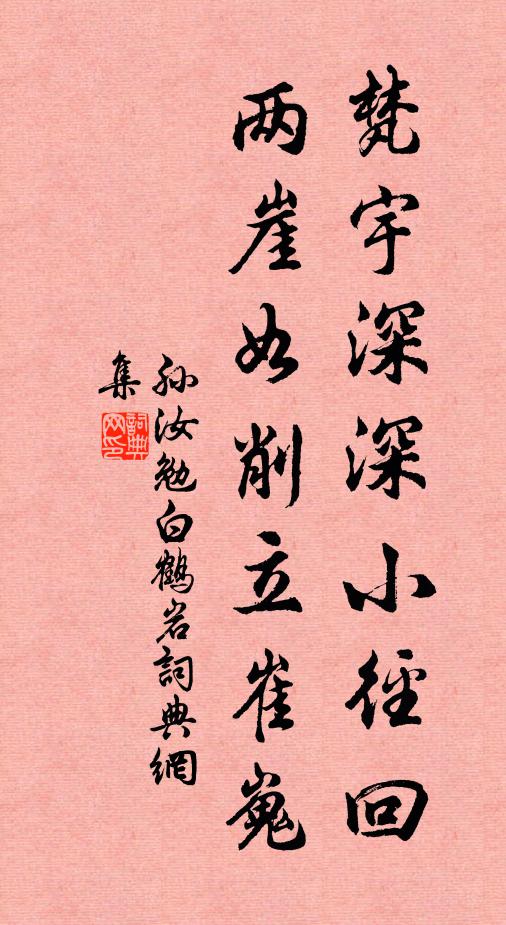 梵宇深深小径回
两崖如削立崔嵬
孙汝勉白鶴岩詞典網
集
詞典网印